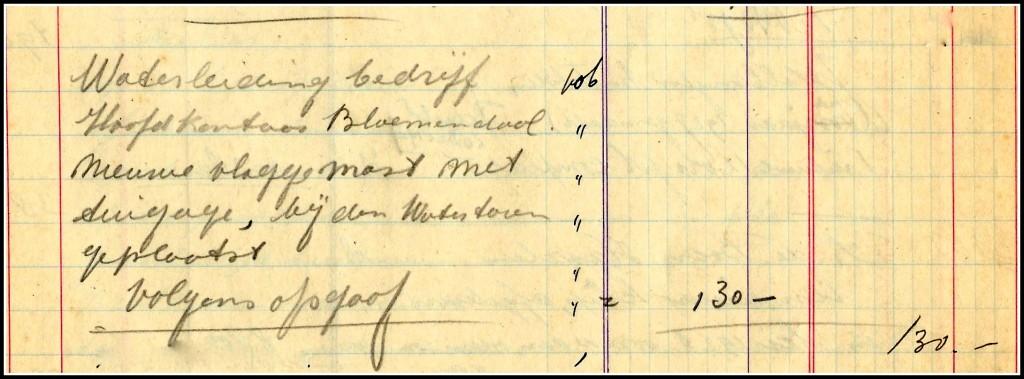 Waterleiding bedrijf
Hoofdkantoor Bloemendaal. "
Nieuwe vlaggemast met "
tuigage, bij den Watertoren "
geplaatst "
Volgens opgaaf " = 130 —
130. —